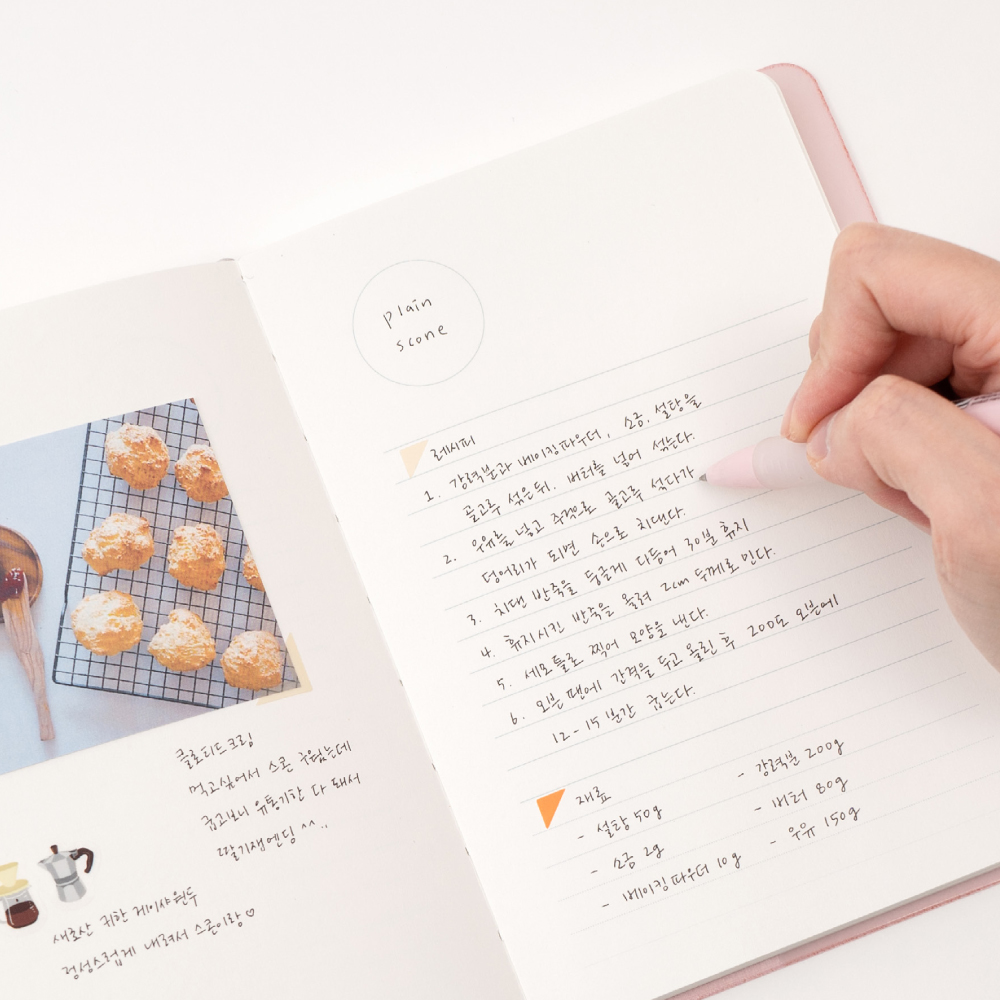 클로티드크림
먹고싶어서 스콘 구웠는데
굽고보니 유통기한 다 돼서
딸기잼엔딩 ^^..
새로산 귀한 게이샤원두
정성스럽게 내려서 스콘이랑♡
plain
scone
레시피
1. 강력분과 베이킹파우더, 소금, 설탕을
골고루 섞은뒤, 버터를 넣어 섞는다.
2. 우유를 넣고 주걱으로 골고루 섞다가
덩어리가 되면 손으로 치댄다.
3. 치댄 반죽을 둥글게 다듬어 30분 휴지
4. 휴지시킨 반죽을 올려 2cm 두께로 민다.
5. 세모틀로 찍어 모양을 낸다.
6. 오븐팬에 간격을 두고 올린 후 200도 오븐에
12-15분간 굽는다.
재료
- 설탕 50g
- 소금 2g
- 베이킹파우더 10g
- 강력분 200g
- 버터 80g
- 우유 150g